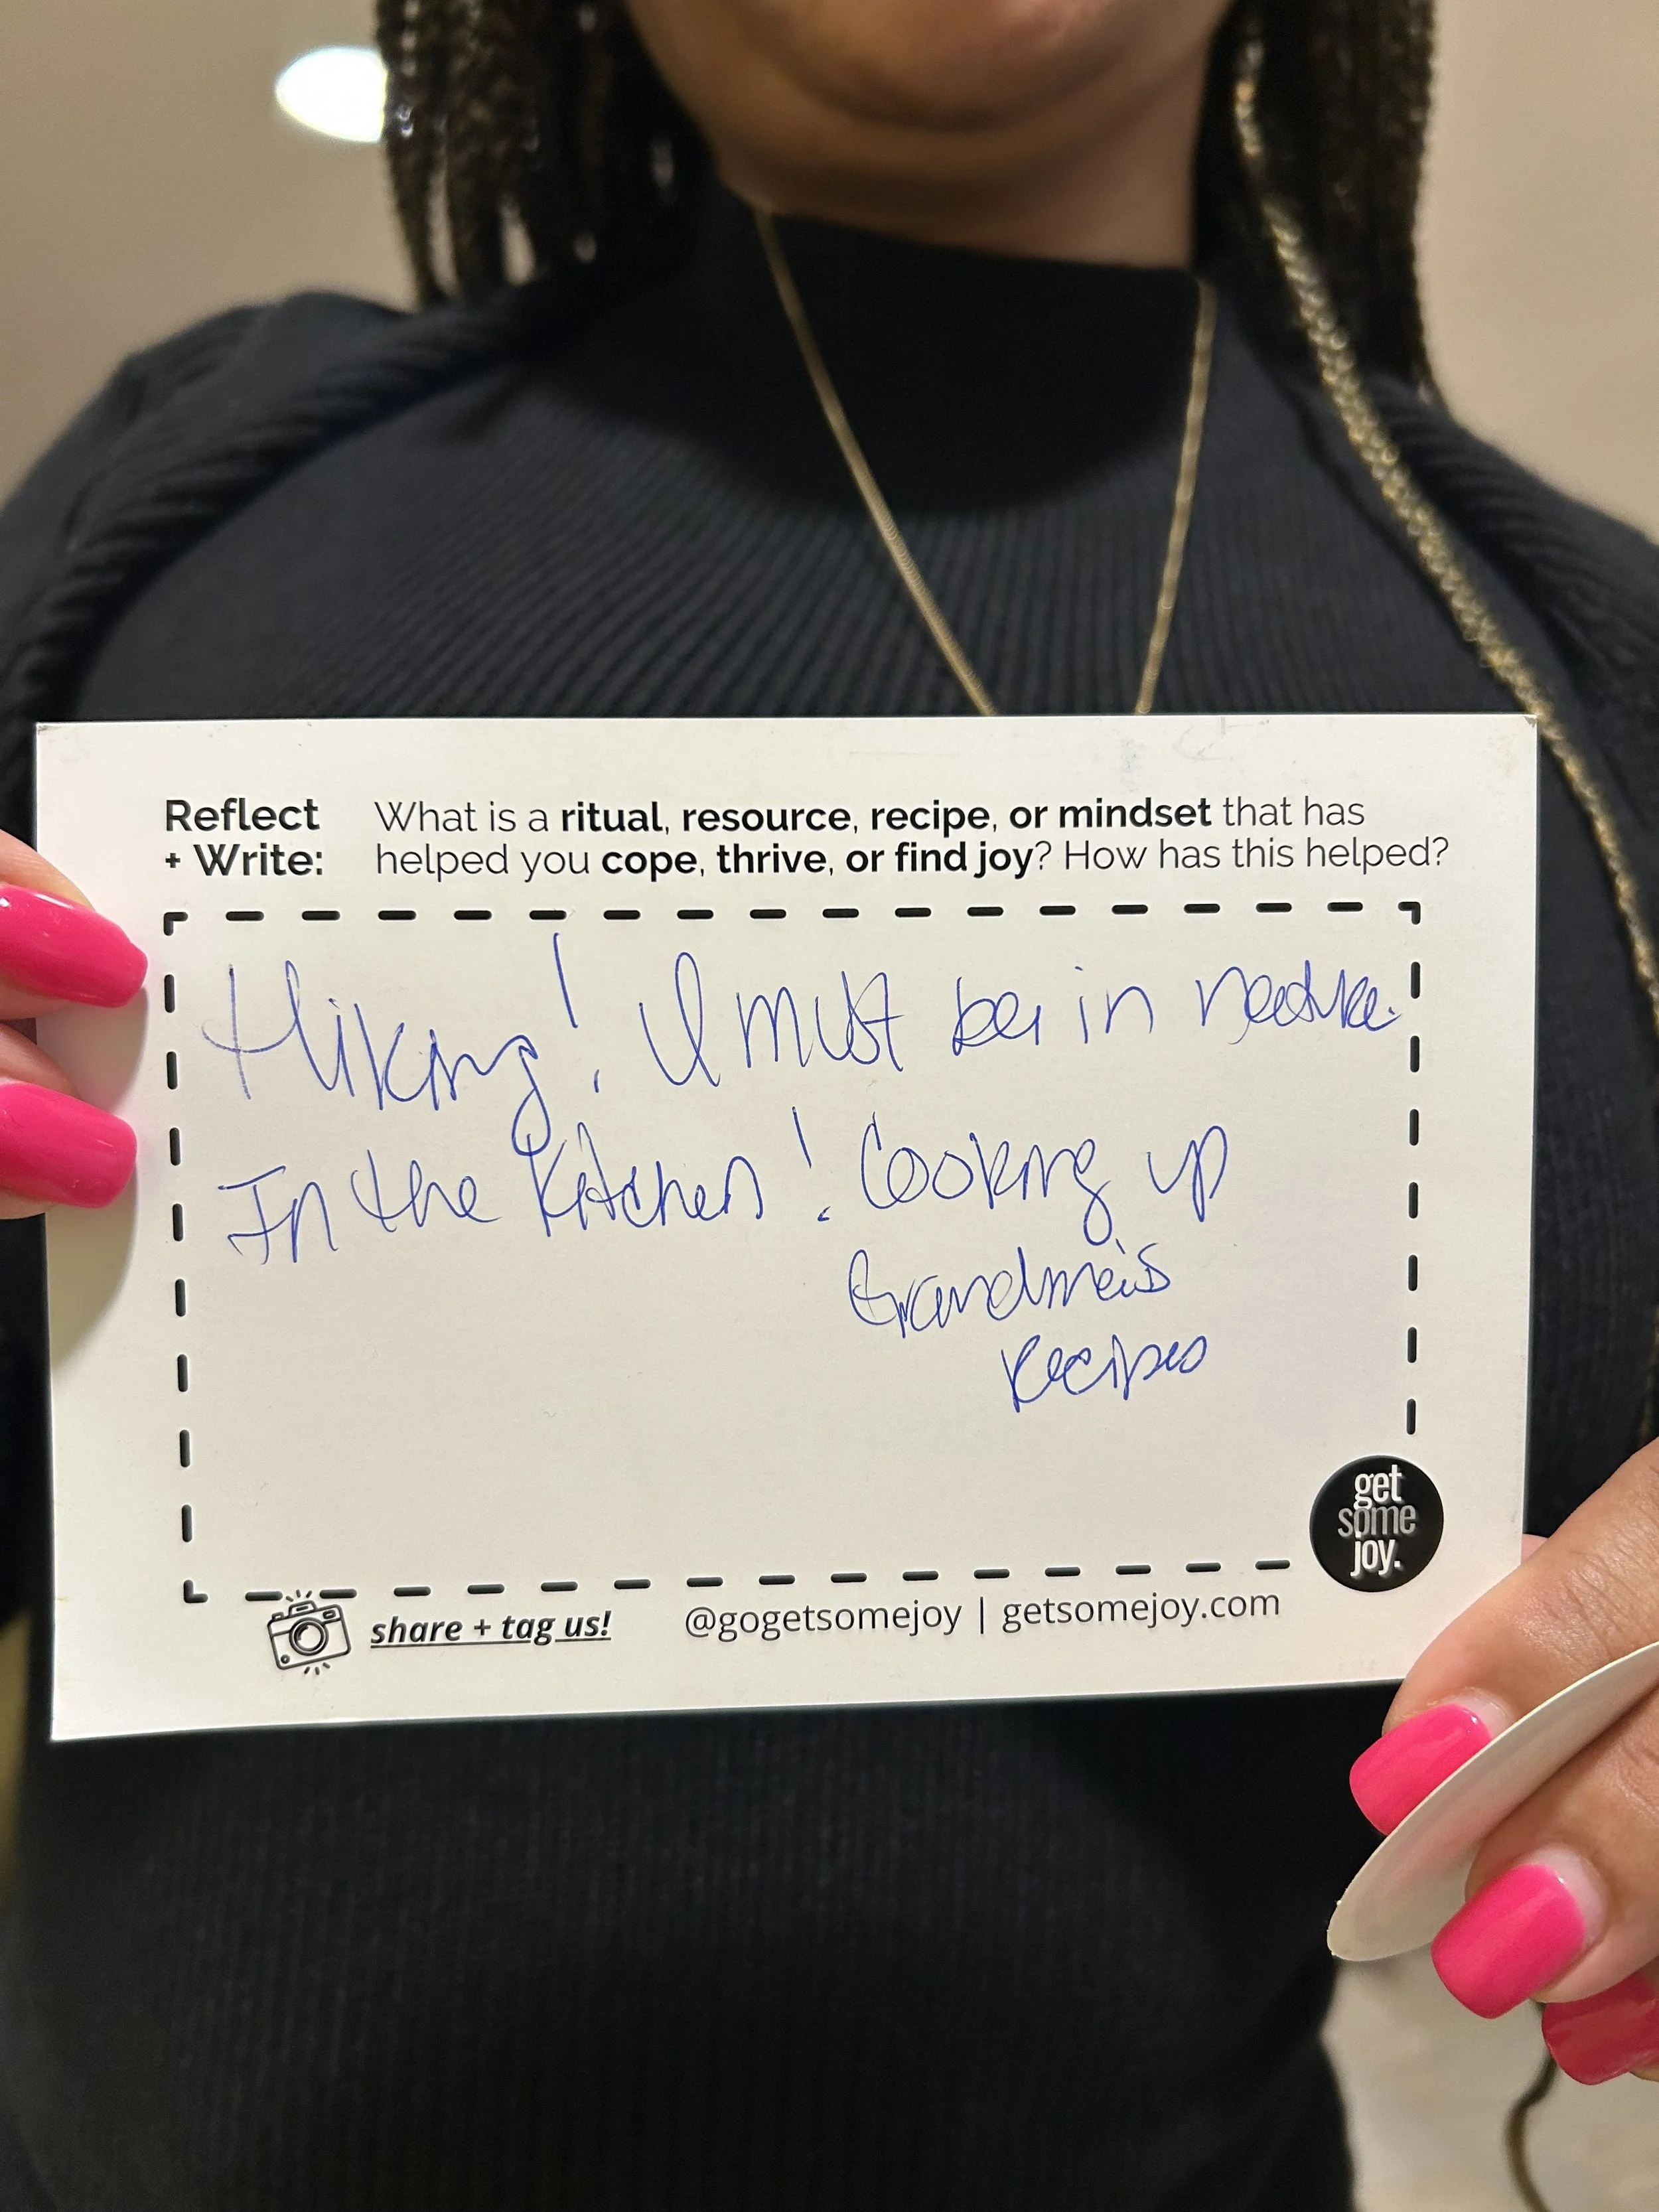 Reflect + Write:
What is a ritual, resource, recipe, or mindset that has
helped you cope, thrive, or find joy? How has this helped?
Hiking! I must be in nature.
In the Kitchen! Cooking up
Grandma's
Recipes
get
some
joy.
share + tag us! @gogetsomejoy | getsomejoy.com